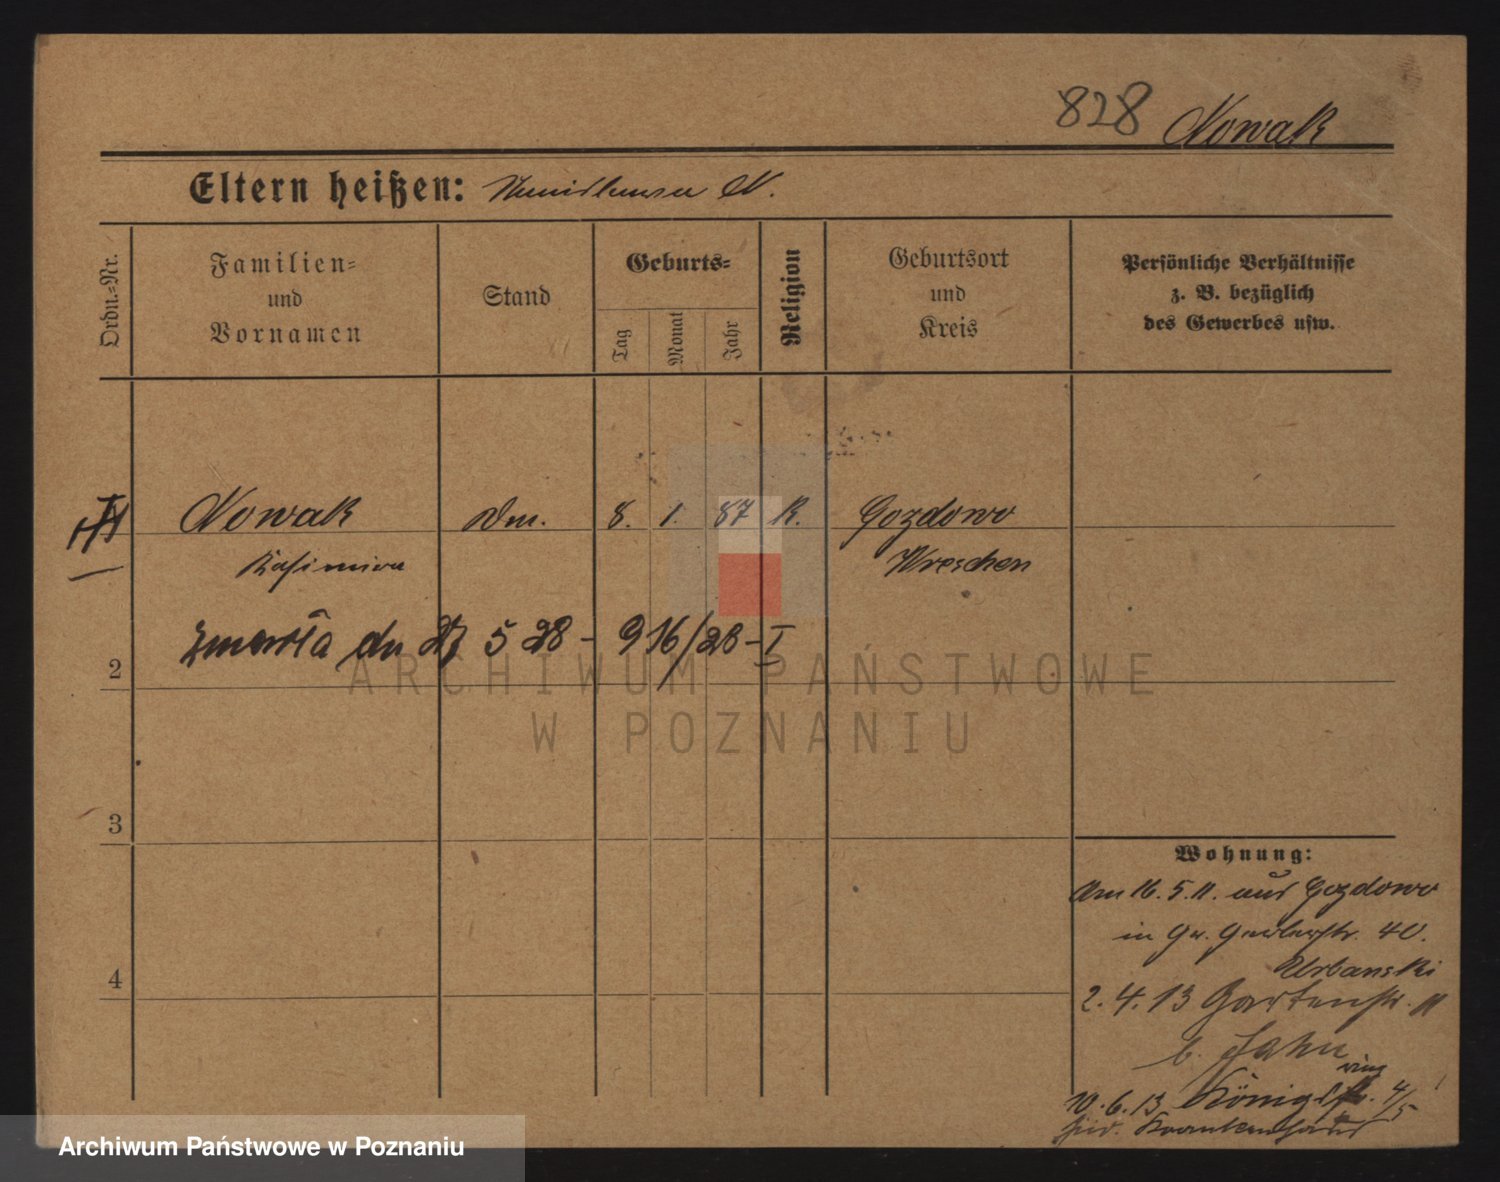 828 Nowak
Eltern heißen: N.
Ordn.=Nr.
Familien=
und
Vornamen
Stand
Geburts=
Tag
Monat
Jahr
Religion
Geburtsort
und
Kreis
Persönliche Verhältnisse
z. B. bezüglich
des Gewerbes usw.
Nowak
8. 1. 87 K. Gozdowo
Kasimira Wreschen
zmarła dn 27 5 28 - 916/28 - I
2
ARCHIWUM PAŃSTWOWE
W POZNANIU
3
4
Wohnung:
Am 16. 5. 11. aus Gozdowo
in Gr. Gerberstr. 40.
Urbanski
2. 4. 13 Gartenstr. 11
b. Jahn
10. 6. 13 Königstr. 4/5
jüd. Krankenhaus
Archiwum Państwowe w Poznaniu